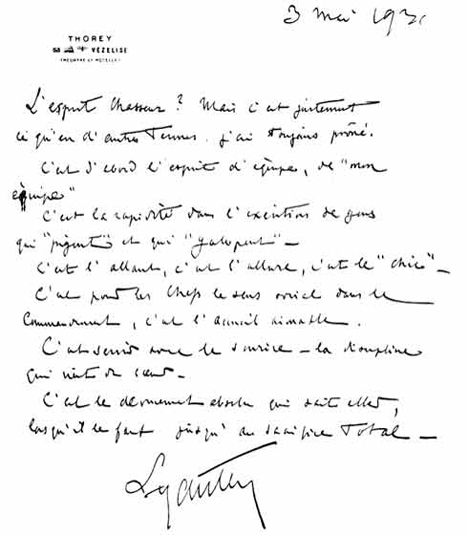 3 mai 1931
THOREY
VÉZELISE
(MEURTHE ET MOSELLE)
L'esprit chasseur ? Mais c'est justement
ce qu'en d'autres termes j'ai toujours prôné.
C'est d'abord l'esprit d'équipe, de "mon
équipe"
C'est la rapidité dans l'exécution de gens
qui "pigent" et qui "galopent" –
C'est l'allant, c'est l'allure, c'est le "chic" –
C'est pour les chefs le sens social dans le
Commandement, c'est l'accueil aimable.
C'est servir avec le sourire – la discipline
qui vient du cœur –
C'est le dévouement absolu qui sait aller,
lorsqu'il le faut jusqu'au sacrifice total –
Lyautey